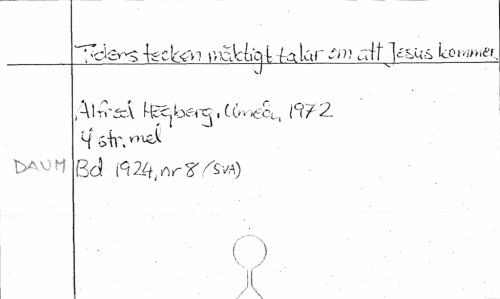 Tidens tecken mäktigt talar om att Jesus kommer.
Alfred Högberg, Umeå, 1972
4 str. mel
DAUM Bd 1924, nr 8 (SVA)